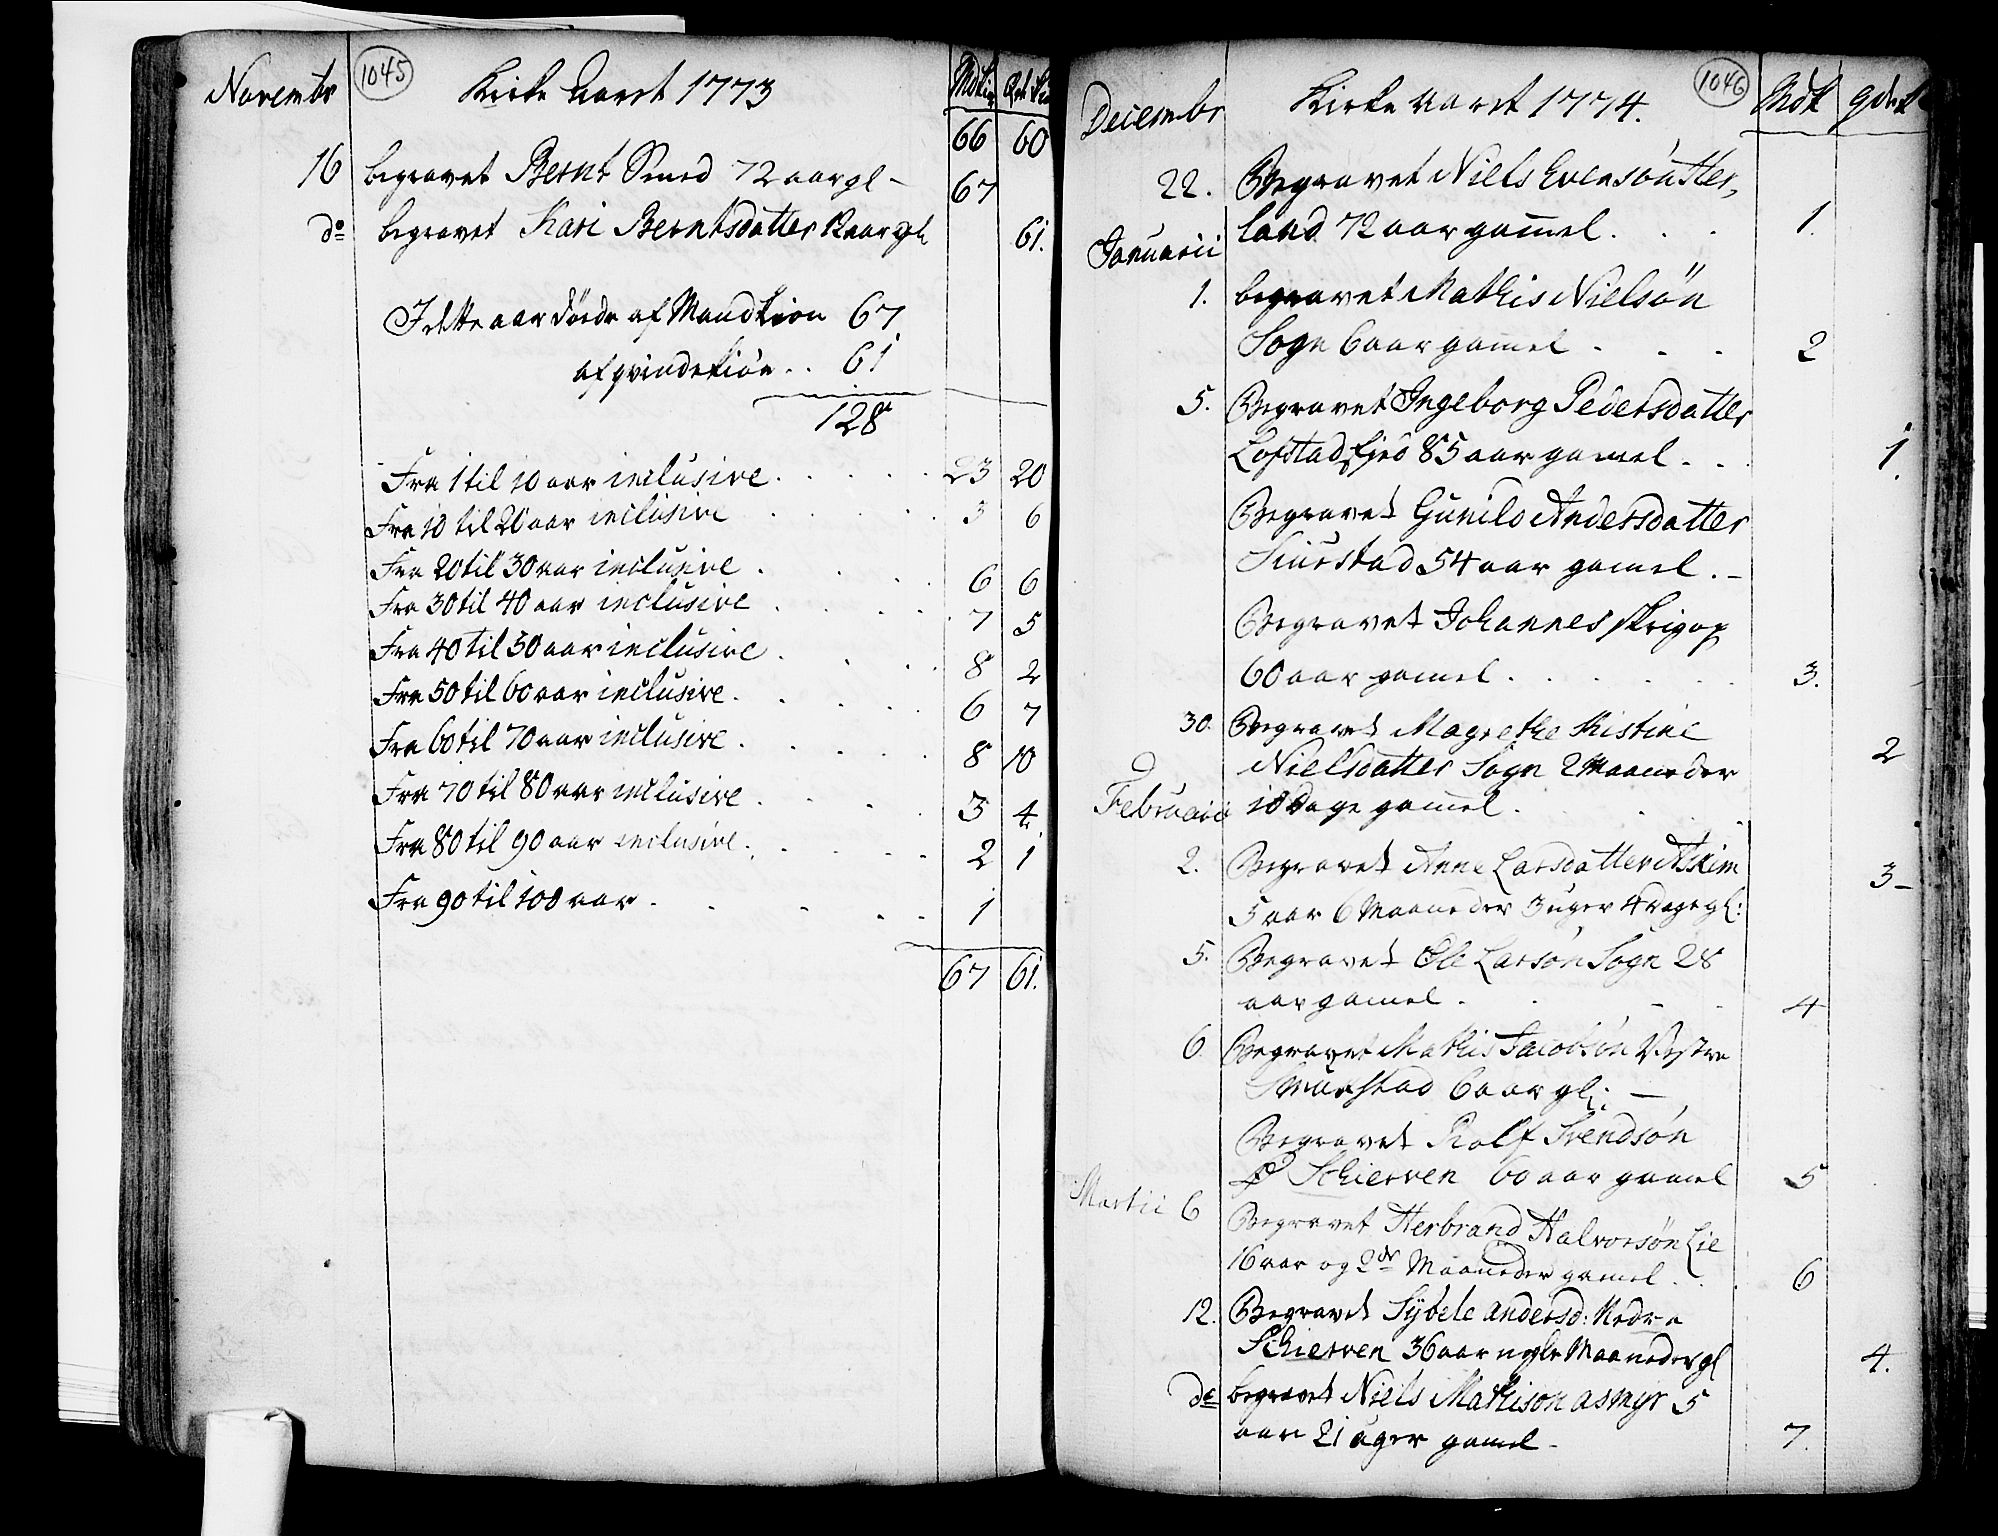 Novembr
1045
Kirke Aaret 1773
Mdkiø
Qvkiø
66 60
16 begravet Bernt Smed 72 aar gl - 67
do begravet Kari Berntsdatter 12 aar gl 61.
I dette aar døde af Mandkiøn 67
af qvindekiøn .. 61
128
Fra 1 til 10 aar inclusive . . . . . 23 20
Fra 10 til 20 aar inclusive . . . . 3 6
Fra 20 til 30 aar inclusive . . . . 6 6
Fra 30 til 40 aar inclusive . . . . 7 5
Fra 40 til 50 aar inclusive . . . . 8 2
Fra 50 til 60 aar inclusive . . . . 6 7
Fra 60 til 70 aar inclusive . . . . 8 10
Fra 70 til 80 aar inclusive . . . . 3 4
Fra 80 til 90 aar inclusive . . . . 2 1
Fra 90 til 100 aar . . . . . 1
67 61.
Decembr
Kirke Aaret 1774.
1046
Mdk
qdek
22. Begravet Niels Evensøn Ster,
land 72 aar gamel . . . 1.
Januarii
1. begravet Mathis Nielsøn
Sogn 6 aar gamel . . . 2
5. Begravet Ingeborg Pedersdatter
Lofstad fjed 85 aar gamel . . . 1.
Begravet Gunild Andersdatter
54 aar gamel . -
Begravet Johannes
60 aar gamel . . . . . 3.
30. Begravet Magrethe Kistine
Nielsdatter Sogn 2 Maaneder 2
Februarii 18 Dage gamel .
2. Begravet Anne Larsdatter Askim 3-
5 aar 6 Maaneder 3 uger 4 dage gl:
5. Begravet Ole Larsøn Sogn 28
aar gamel . . - . 4
6. Begravet Mathis Jacobsøn Vestre
Smørstad 6 aar gl: -
Begravet Rolf Svendsøn
Schierven 60 aar gamel 5
Martii 6 Begravet Herbrand Halvorsøn Lie
16 aar og 2de Maaneder gamel . . 6
12. Begravet Sybele Andersd: Nedre
Schierven 36 aar nogle Maaneder gl 4.
do begravet Niels Mathison Asmyr 5
aar 21 uger gamel - 7.